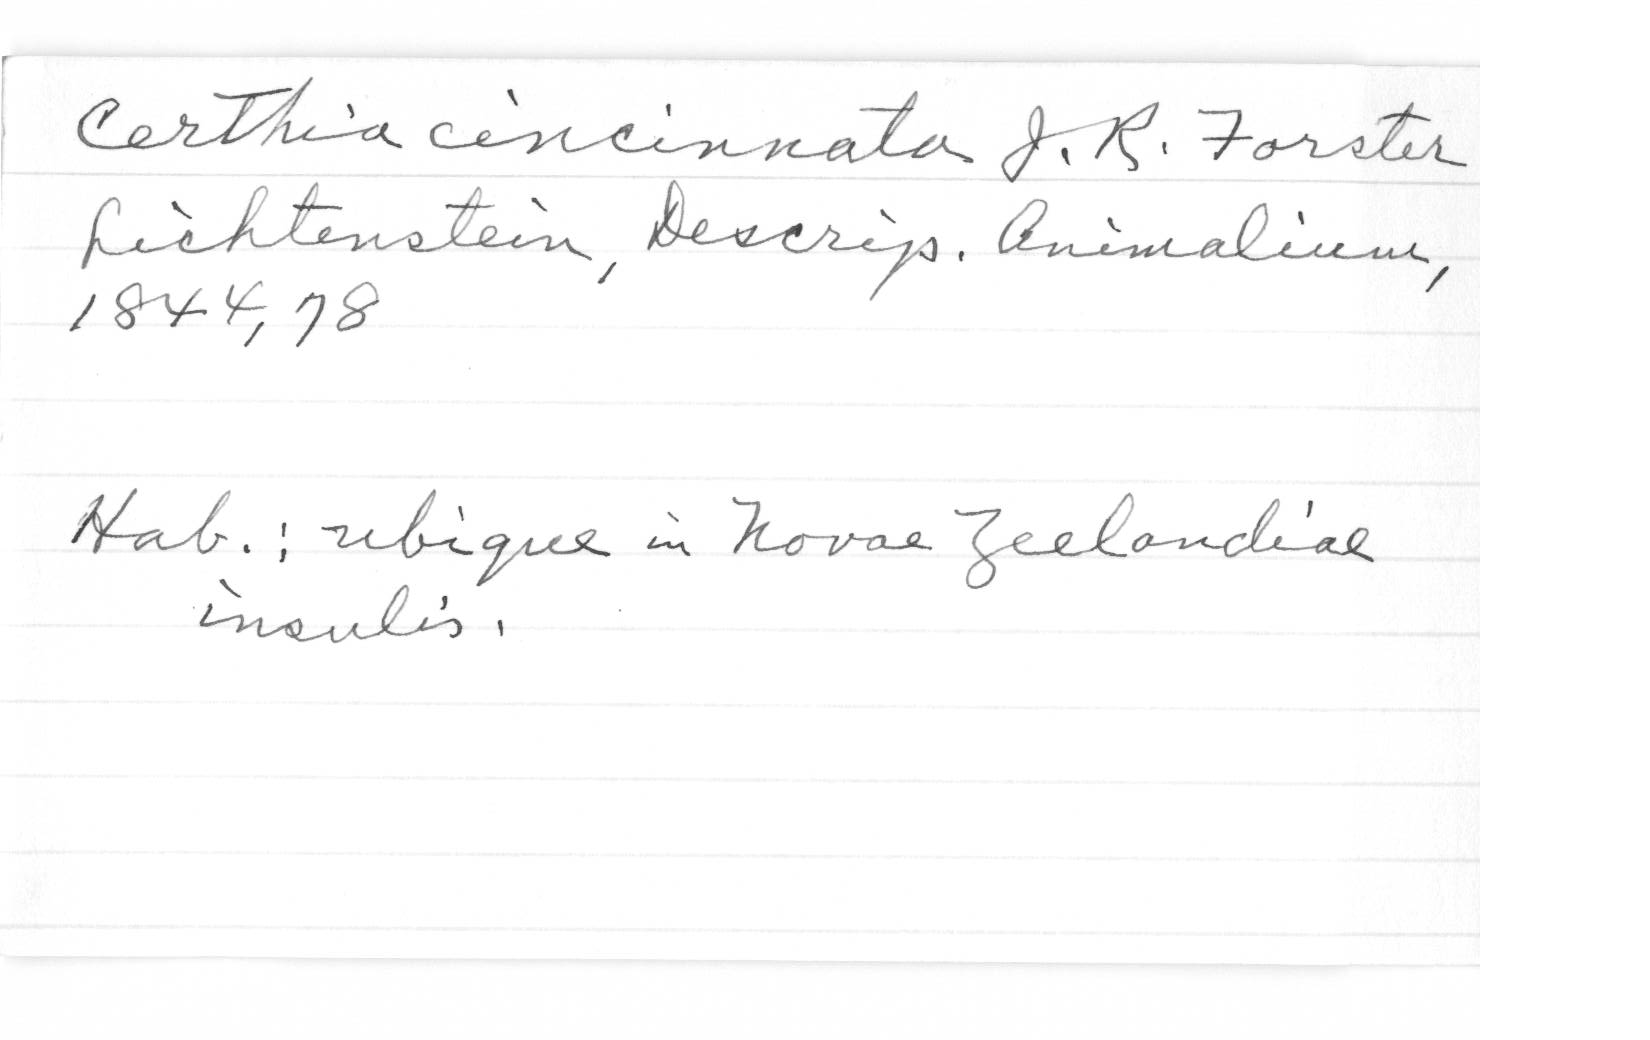 Certhia cincinnata J. R. Forster
Lichtenstein, Descrip. Animalium,
1844, 78
Hab.: ubique in Novae Zeelandiae
insulis.